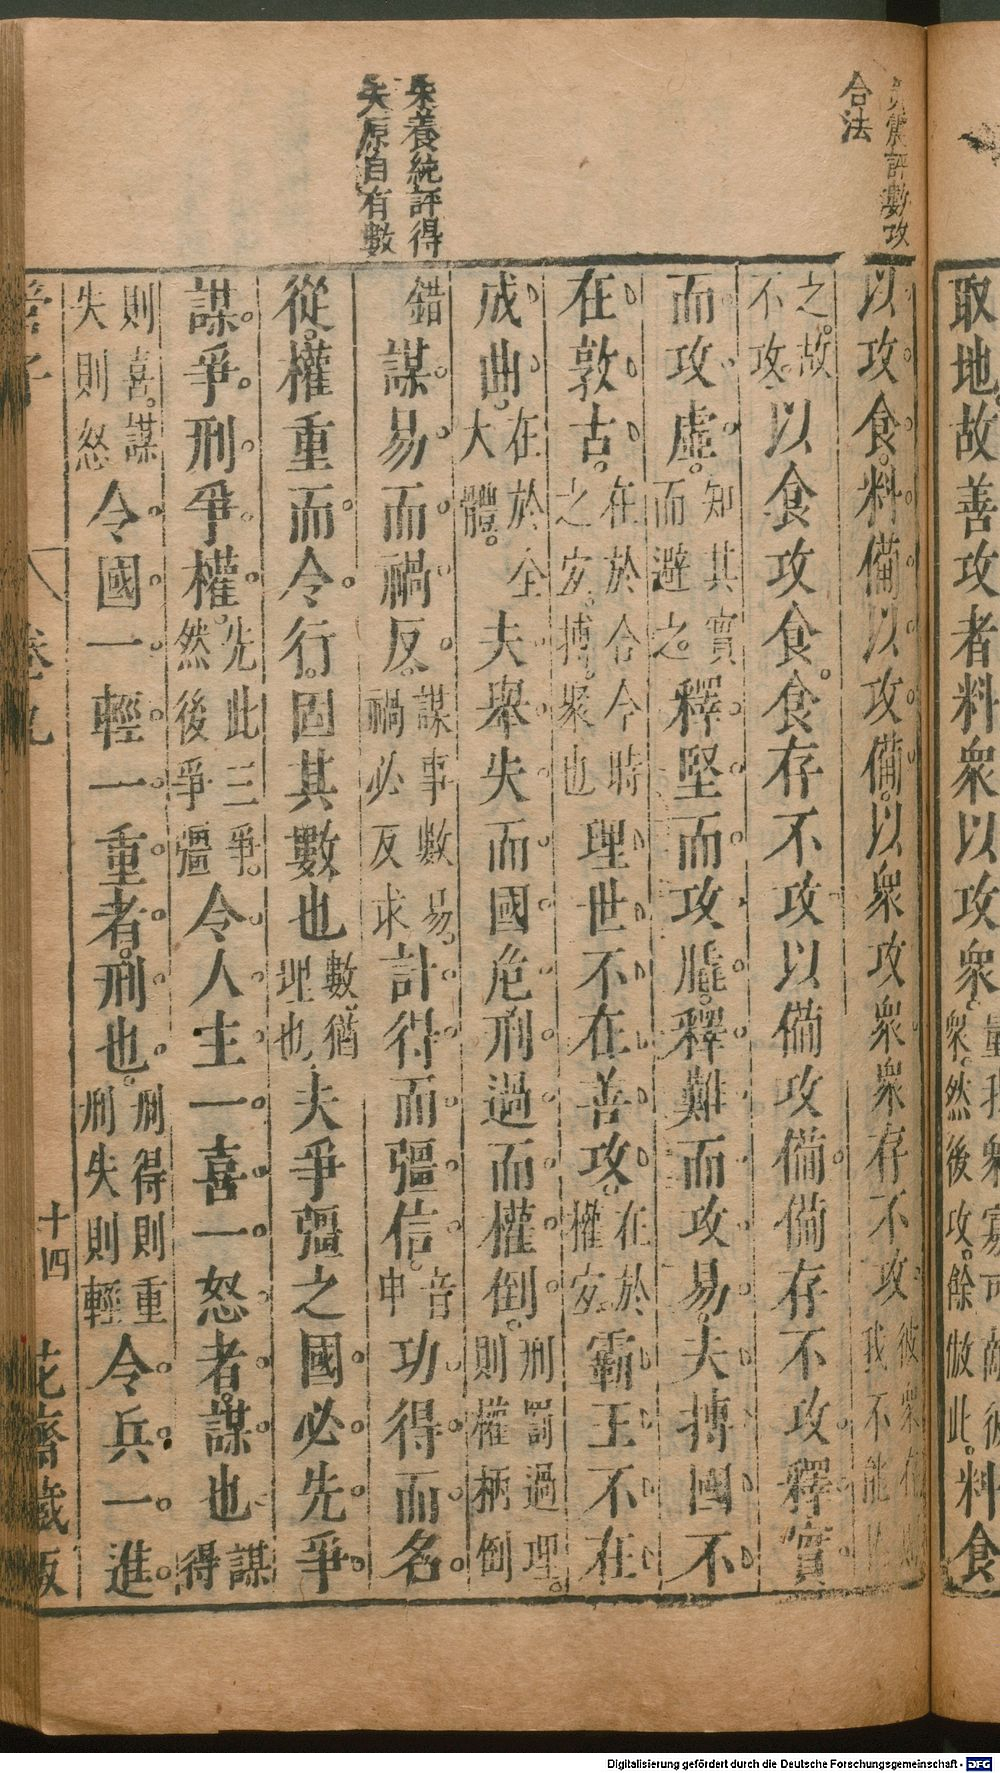 取地故善攻者料衆以攻衆量我衆寡可敵彼衆然後攻餘倣此料食
評數攻
合法
以攻食料備以攻備以衆攻衆衆存不攻彼衆我不能
之故不攻以食攻食食存不攻以備攻備備存不攻釋實
而攻虛知其實而避之釋堅而攻膬釋難而攻易夫摶國不
在敦古在於合今時之宜摶聚也理世不在善攻在於權宜霸王不在
成曲在於全大體夫舉失而國危刑過而權倒刑罰過理則權柄倒
錯謀易而禍反謀事數易禍必反求計得而彊信音申功得而名
朱養純評得
失原自有數
從權重而令行固其數也數猶理也夫爭彊之國必先爭
謀爭刑爭權先此三爭然後爭彊令人主一喜一怒者謀也謀得
則喜謀失則怒令國一輕一重者刑也刑得則重刑失則輕令兵一進
管子 卷九 十四 花齋藏板
Digitalisierung gefördert durch die Deutsche Forschungsgemeinschaft - DFG